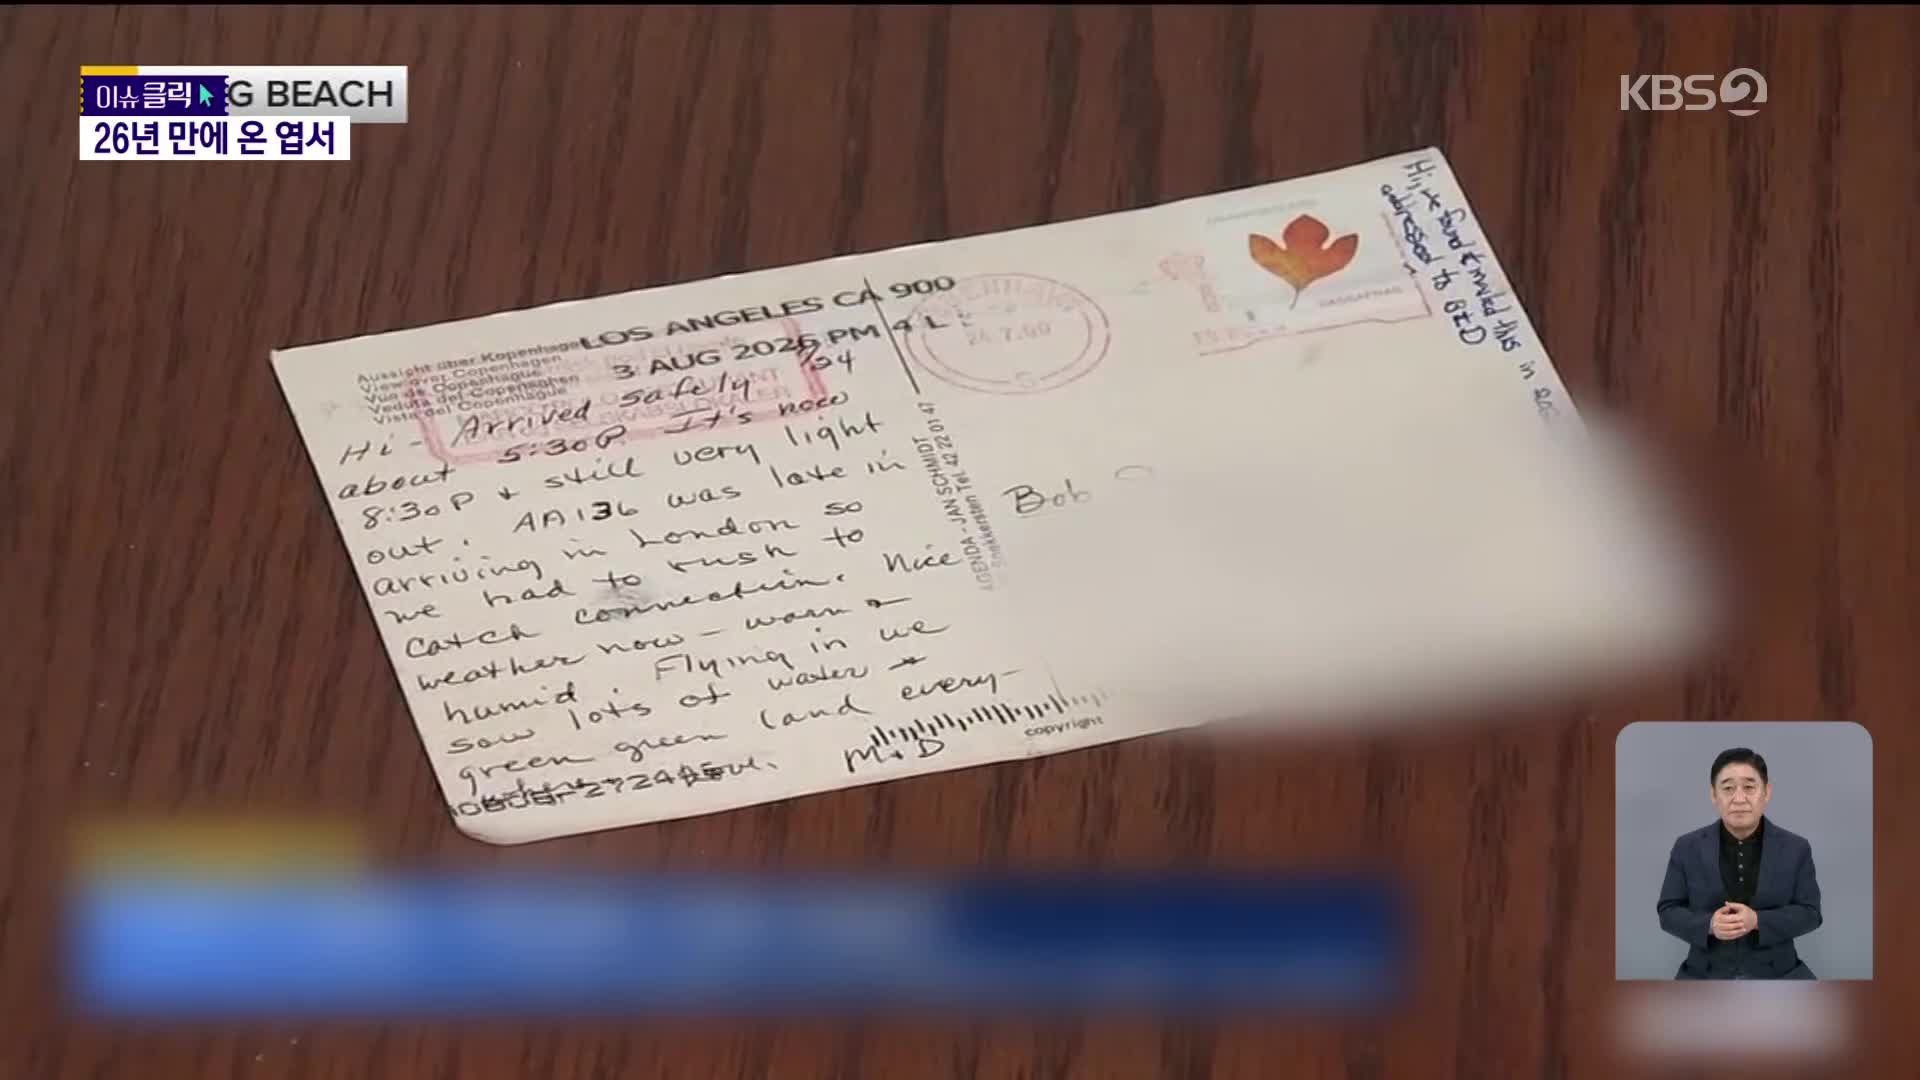 이슈클릭
G BEACH
26년 만에 온 엽서
KBS2
Aussicht über Kopenhagen
View over Copenhagen
Vue de Copenhague
Veduta del Copenaghen
Vista del Copenhague
LOS ANGELES CA 900
3 AUG 2026 PM 4 L
7/24
Hi - Arrived safely
about 5:30P. It's now
8:30P + still very light
out. AA136 was late in
arriving in London so
we had to rush to
catch connection. Nice
weather now - warm +
humid. Flying in we
saw lots of water +
green green land every-
where. Love,
M + D
AGENDA - JAN SCHMIDT
Tel. 42 22 01 47
Bob
SASSAFRAS
Hi, we found & mailed this in
addressed to
copyright